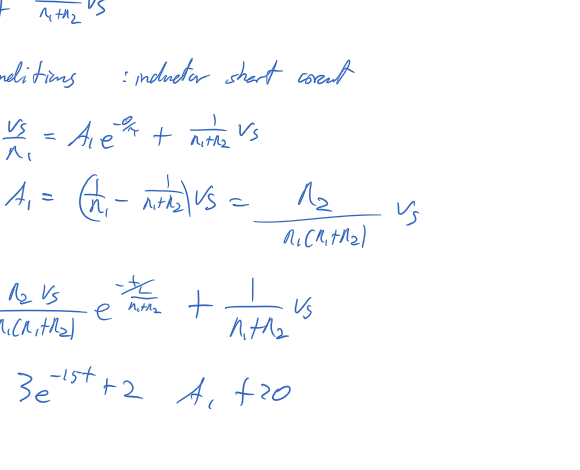 + 1/(R₁+R₂) Vs
nditions : inductor short
Vs/R₁ = A₁e^(-0/τ) + 1/(R₁+R₂) Vs
A₁ = (1/R₁ - 1/(R₁+R₂)) Vs = R₂/(R₁(R₁+R₂)) Vs
R₂ Vs/(R₁(R₁+R₂)) e + 1/(R₁+R₂) Vs
3e^(-15t) + 2 A, t20